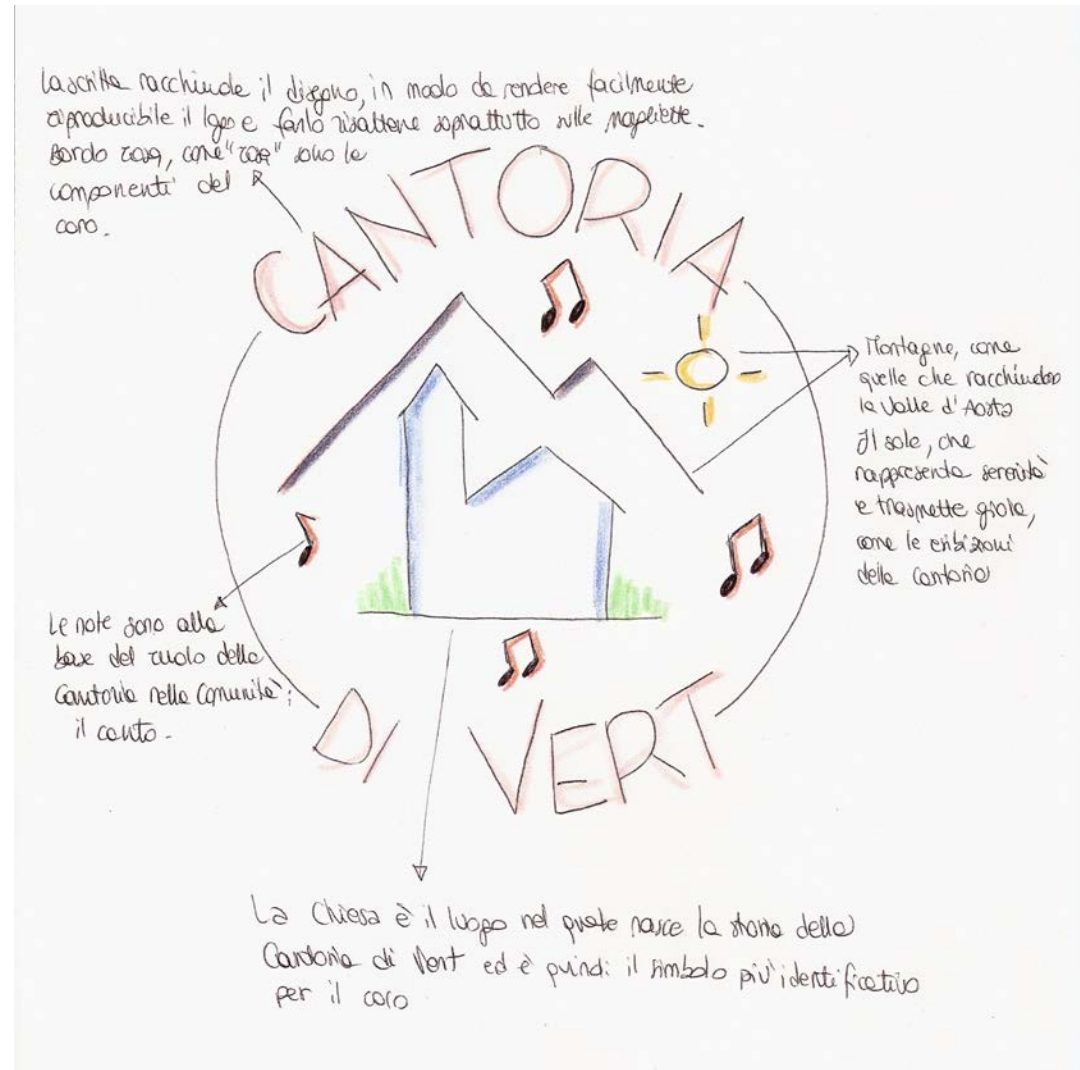 La scritta racchiude il disegno, in modo da rendere facilmente
riproducibile il logo e farlo risaltare soprattutto sulle magliette.
Bordo rosa, come "rosa" sono le
componenti del
coro.
CANTORIA
Montagne, come
quelle che racchiudono
la Valle d'Aosta
Il sole, che
rappresenta serenità
e trasmette gioia,
come le esibizioni
della Cantoria
Le note sono alla
base del ruolo della
Cantoria nella Comunità:
il canto.
DI VERT
La Chiesa è il luogo nel quale nasce la storia della
Cantoria di Vert ed è quindi il simbolo più identificativo
per il coro